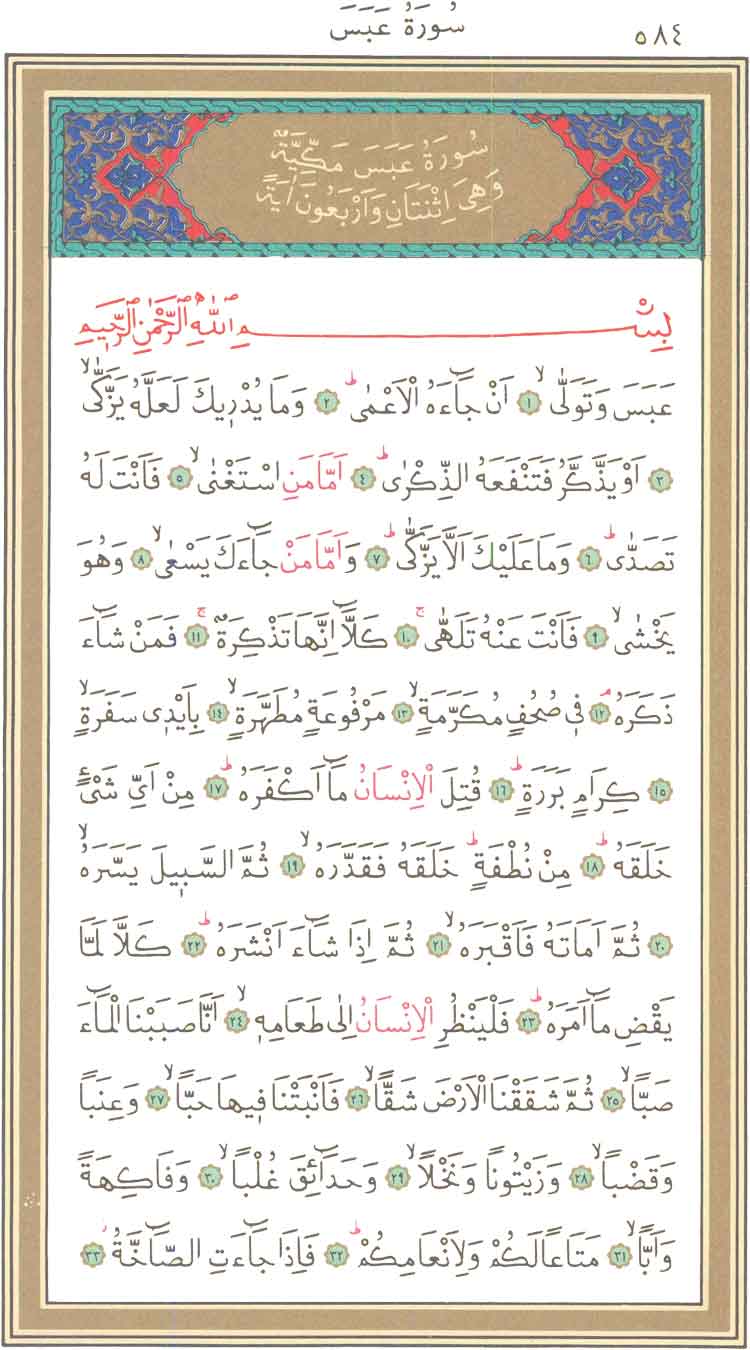 سُورَةُ عَبَسَ ٥٨٤
سُورَةُ عَبَسَ مَكِّيَّةٌ
وَهِىَ اِثْنَتَانِ وَاَرْبَعُونَ اٰيَةً
بِسْمِ اللّٰهِ الرَّحْمٰنِ الرَّحٖيمِ
عَبَسَ وَتَوَلّٰىۙ ١ اَنْ جَٓاءَهُ الْاَعْمٰىۜ ٢ وَمَا يُدْرٖيكَ لَعَلَّهُ يَزَّكّٰىۙ
٣ اَوْ يَذَّكَّرُ فَتَنْفَعَهُ الذِّكْرٰىۜ ٤ اَمَّا مَنِ اسْتَغْنٰىۙ ٥ فَاَنْتَ لَهُ
تَصَدّٰىۜ ٦ وَمَا عَلَيْكَ اَلَّا يَزَّكّٰىۜ ٧ وَاَمَّا مَنْ جَٓاءَكَ يَسْعٰىۙ ٨ وَهُوَ
يَخْشٰىۙ ٩ فَاَنْتَ عَنْهُ تَلَهّٰىۚ ١٠ كَلَّٓا اِنَّهَا تَذْكِرَةٌۚ ١١ فَمَنْ شَٓاءَ
ذَكَرَهُۢ ١٢ فٖى صُحُفٍ مُكَرَّمَةٍۙ ١٣ مَرْفُوعَةٍ مُطَهَّرَةٍۙ ١٤ بِاَيْدٖى سَفَرَةٍۙ
١٥ كِرَامٍ بَرَرَةٍۜ ١٦ قُتِلَ الْاِنْسَانُ مَٓا اَكْفَرَهُۜ ١٧ مِنْ اَىِّ شَىْءٍ
خَلَقَهُۜ ١٨ مِنْ نُطْفَةٍۜ خَلَقَهُ فَقَدَّرَهُۙ ١٩ ثُمَّ السَّبٖيلَ يَسَّرَهُۙ
٢٠ ثُمَّ اَمَاتَهُ فَاَقْبَرَهُۙ ٢١ ثُمَّ اِذَا شَٓاءَ اَنْشَرَهُۜ ٢٢ كَلَّا لَمَّا
يَقْضِ مَٓا اَمَرَهُۜ ٢٣ فَلْيَنْظُرِ الْاِنْسَانُ اِلٰى طَعَامِهٖۙ ٢٤ اَنَّا صَبَبْنَا الْمَٓاءَ
صَبًّاۙ ٢٥ ثُمَّ شَقَقْنَا الْاَرْضَ شَقًّاۙ ٢٦ فَاَنْبَتْنَا فٖيهَا حَبًّاۙ ٢٧ وَعِنَبًا
وَقَضْبًاۙ ٢٨ وَزَيْتُونًا وَنَخْلًاۙ ٢٩ وَحَدَٓائِقَ غُلْبًاۙ ٣٠ وَفَاكِهَةً
وَاَبًّاۙ ٣١ مَتَاعًا لَكُمْ وَلِاَنْعَامِكُمْۜ ٣٢ فَاِذَا جَٓاءَتِ الصَّٓاخَّةُۘ ٣٣